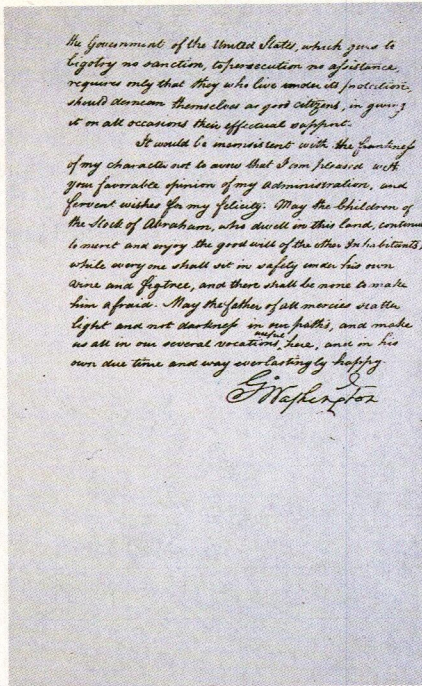 the Government of the United States, which gives to
bigotry no sanction, to persecution no assistance,
requires only that they who live under its protection,
should demean themselves as good citizens, in giving
it on all occasions their effectual support.
It would be inconsistent with the frankness
of my character not to avow that I am pleased with
your favorable opinion of my administration, and
fervent wishes for my felicity. May the Children of
the Stock of Abraham, who dwell in this land, continue
to merit and enjoy the good will of the other Inhabitants,
while every one shall sit in safety under his own
vine and figtree, and there shall be none to make
him afraid. May the father of all mercies scatter
light and not darkness in our paths, and make
us all in our several vocations useful here, and in his
own due time and way everlastingly happy.
G. Washington